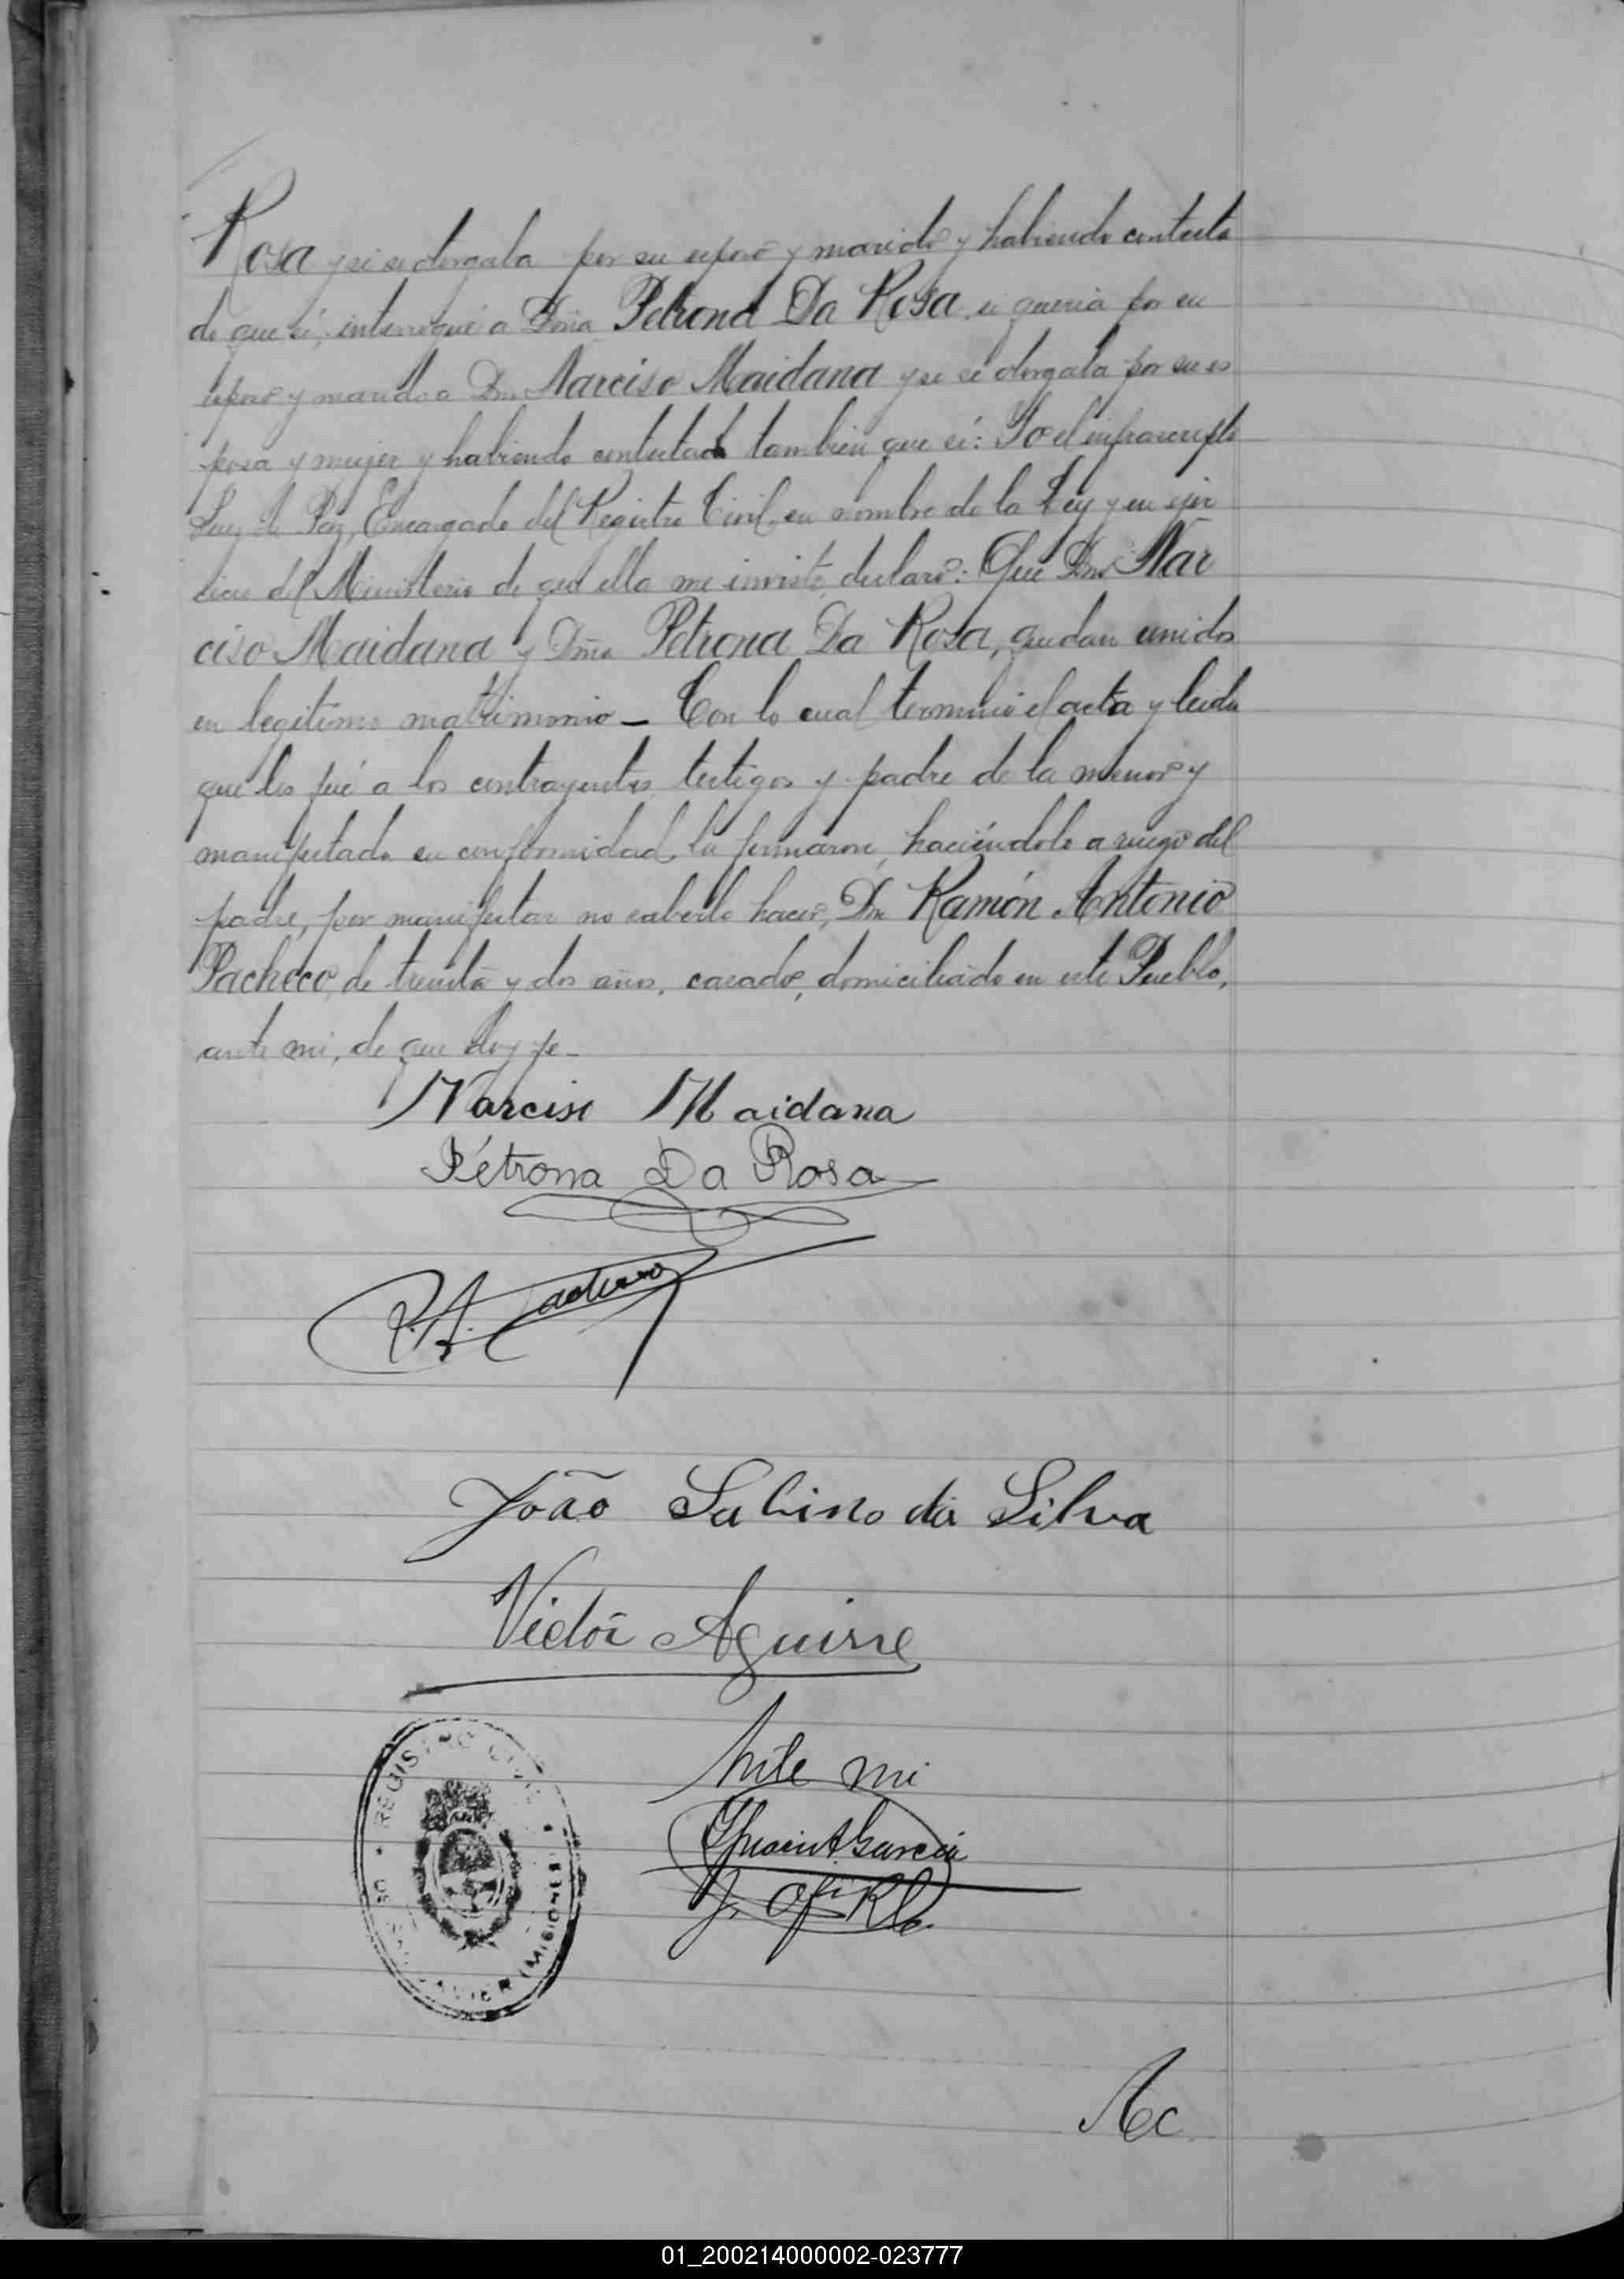 Rosa y si se otorgaba por su esposo y marido y habiendo contesta
do que sí, interrogué a Dña Petrona Da Rosa si queria por su
esposo y marido a Dn Narciso Maidana y si se otorgaba por su es
posa y mujer y habiendo contestado tambien que sí: Yo el infrascripto
Juez de Paz, Encargado del Registro Civil, en nombre de la Ley y en ejer
cicio del Ministerio de que ella me inviste, declaro: Que Dn Nar
ciso Maidana y Dña Petrona Da Rosa, quedan unidos
en legitimo matrimonio — Con lo cual terminó el acta y leida
que les fué a los contrayentes, testigos y padre de la menor y
manifestada su conformidad, la firmaron, haciéndolo a ruego del
padre, por manifestar no saberlo hacer, Dn Ramón Antonio
Pacheco, de treinta y dos años, casado, domiciliado en este Pueblo,
ante mi, de que doy fe —
Narciso Maidana
Pétrona Da Rosa
R. A. Pacheco
João Sabino da Silva
Victor Aguirre
Ante mi
Garcia
REGISTRO CIVIL
SAN JAVIER (MISIONES)
Ac
01_200214000002-023777